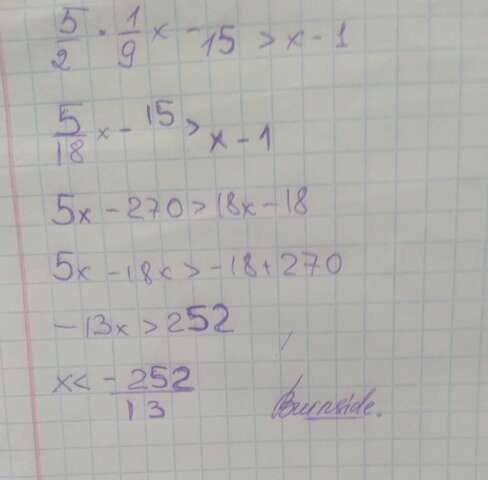 5/2 · 1/9 x - 15 > x - 1
5/18 x - 15 > x - 1
5x - 270 > 18x - 18
5x - 18x > -18 + 270
-13x > 252
x < -252/13
Burnside.